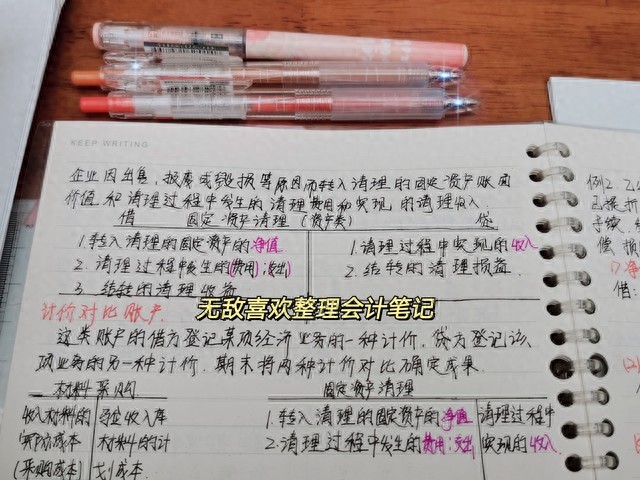 KEEP WRITING
企业因出售、报废或毁损等原因而转入清理的固定资产账面
价值和清理过程中发生的清理费用和实现的清理收入
借 固定资产清理（资产类） 贷
1.转入清理的固定资产的净值 1.清理过程中实现的收入
2.清理过程中发生的(费用;支出) 2.结转的清理损益.
3.结转的清理收益
无敌喜欢整理会计笔记
计价对比账户.
这类账户的借方登记某项经济业务的一种计价，贷方登记该
项业务的另一种计价，期末将两种计价对比确定成果.
材料采购 固定资产清理
收入材料的 验收入库 1.转入清理的固定资产的净值 清理过程中
实际成本 材料的计 2.清理过程中发生的费用;支出 实现的收入
(采购成本) 划成本.
例2.
已提折
手续,
偿损
借:
(2)